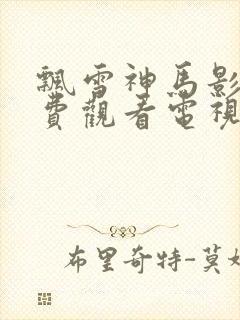 飄雪神馬影
費觀看電視
布里奇特-莫